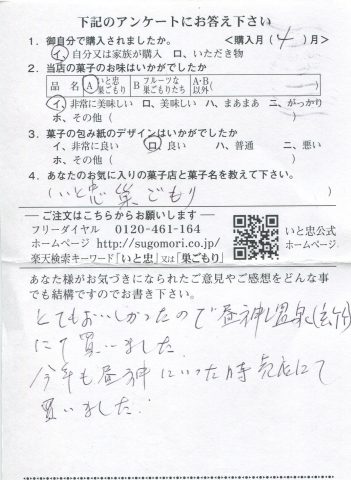 下記のアンケートにお答え下さい
1. 御自分で購入されましたか。 <購入月( 4 )月>
イ、自分又は家族が購入 ロ、いただき物
2. 当店の菓子のお味はいかがでしたか
品 名 A いと忠巣ごもり B フルーツな巣ごもりたち A・B以外( )
イ、非常に美味しい ロ、美味しい ハ、まあまあ ニ、がっかり
ホ、その他( )
3. 菓子の包み紙のデザインはいかがでしたか
イ、非常に良い ロ、良い ハ、普通 ニ、悪い
ホ、その他( )
4. あなたのお気に入りの菓子店と菓子名を教えて下さい。
(いと忠 巣ごもり )
― ご注文はこちらからお願いします ―
フリーダイヤル 0120-461-164
ホームページ http://sugomori.co.jp/
楽天検索キーワード「いと忠」又は「巣ごもり」
いと忠公式
ホームページ
あなた様がお気づきになられたご意見やご感想をどんな事
でも結構ですのでお書き下さい。
とてもおいしかったので昼神温泉
にて買いました
今年も昼神にいった時売店にて
買いました